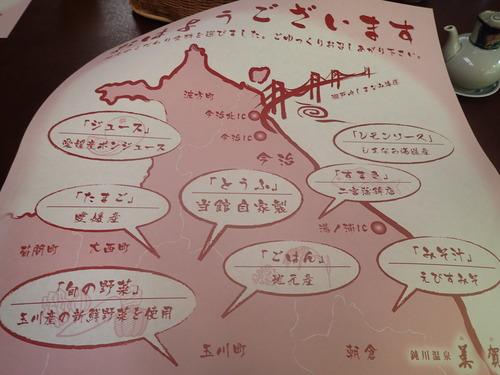 おはようございます
こだわり食材を選びました。ごゆっくりお召しあがり下さい。
波方町
瀬戸内しまなみ海道
今治北IC
今治IC
今治
「ジュース」
愛媛産ポンジュース
「レモンソース」
しまなみ海道産
「すまき」
二宮蒲鉾店
「とうふ」
当館自家製
「たまご」
愛媛産
湯ノ浦IC
菊間町
大西町
「ごはん」
地元産
「みそ汁」
えびすみそ
「旬の野菜」
玉川産の新鮮野菜を使用
玉川町
朝倉
鈍川温泉
美賀